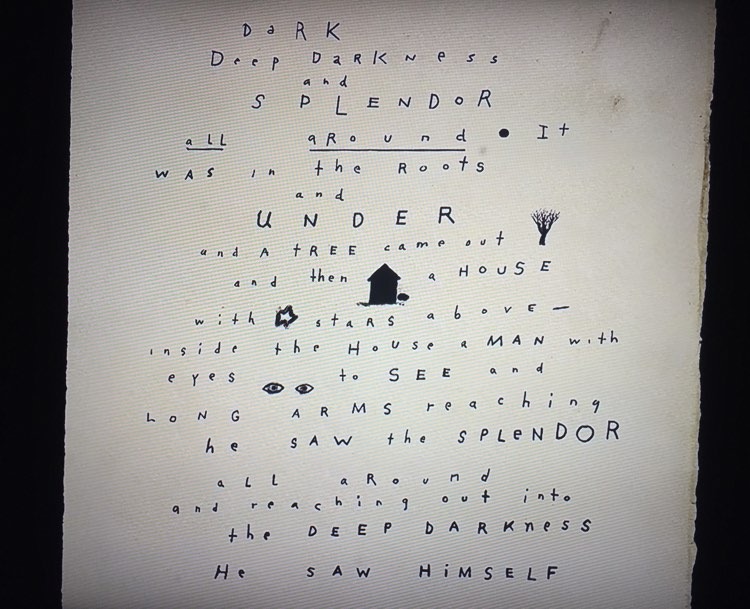 DaRK
Deep DaRKNess
and
SPLENDoR
aLL aRound • It
WAS in the RootS
and
UNDER
and A tREE came out
and then a HOUSE
with staRS aboVE —
inside the HoUSe a MAN with
eyes to SEE and
LoNG ARMS reaching
he SAW the SPLeNDOR
aLL aRound
and reaching out into
the DEEP DARKneSS
He SAW HiMSELF